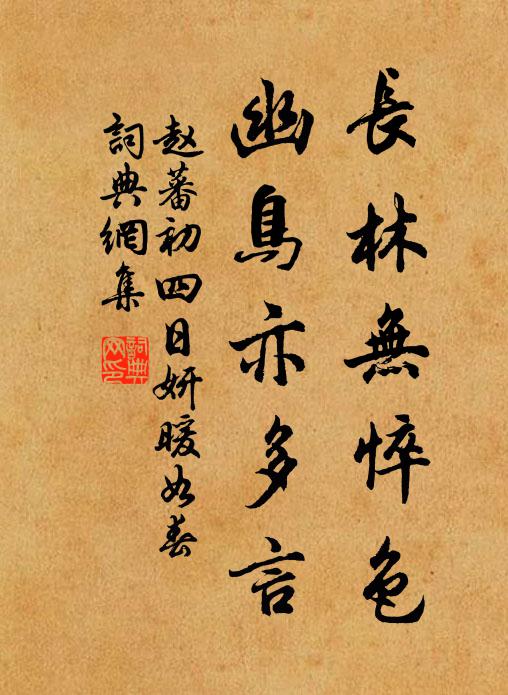 長林無悴色
幽鳥亦多言
赵蕃初四日妍暖如春
詞典網集
詞典网印